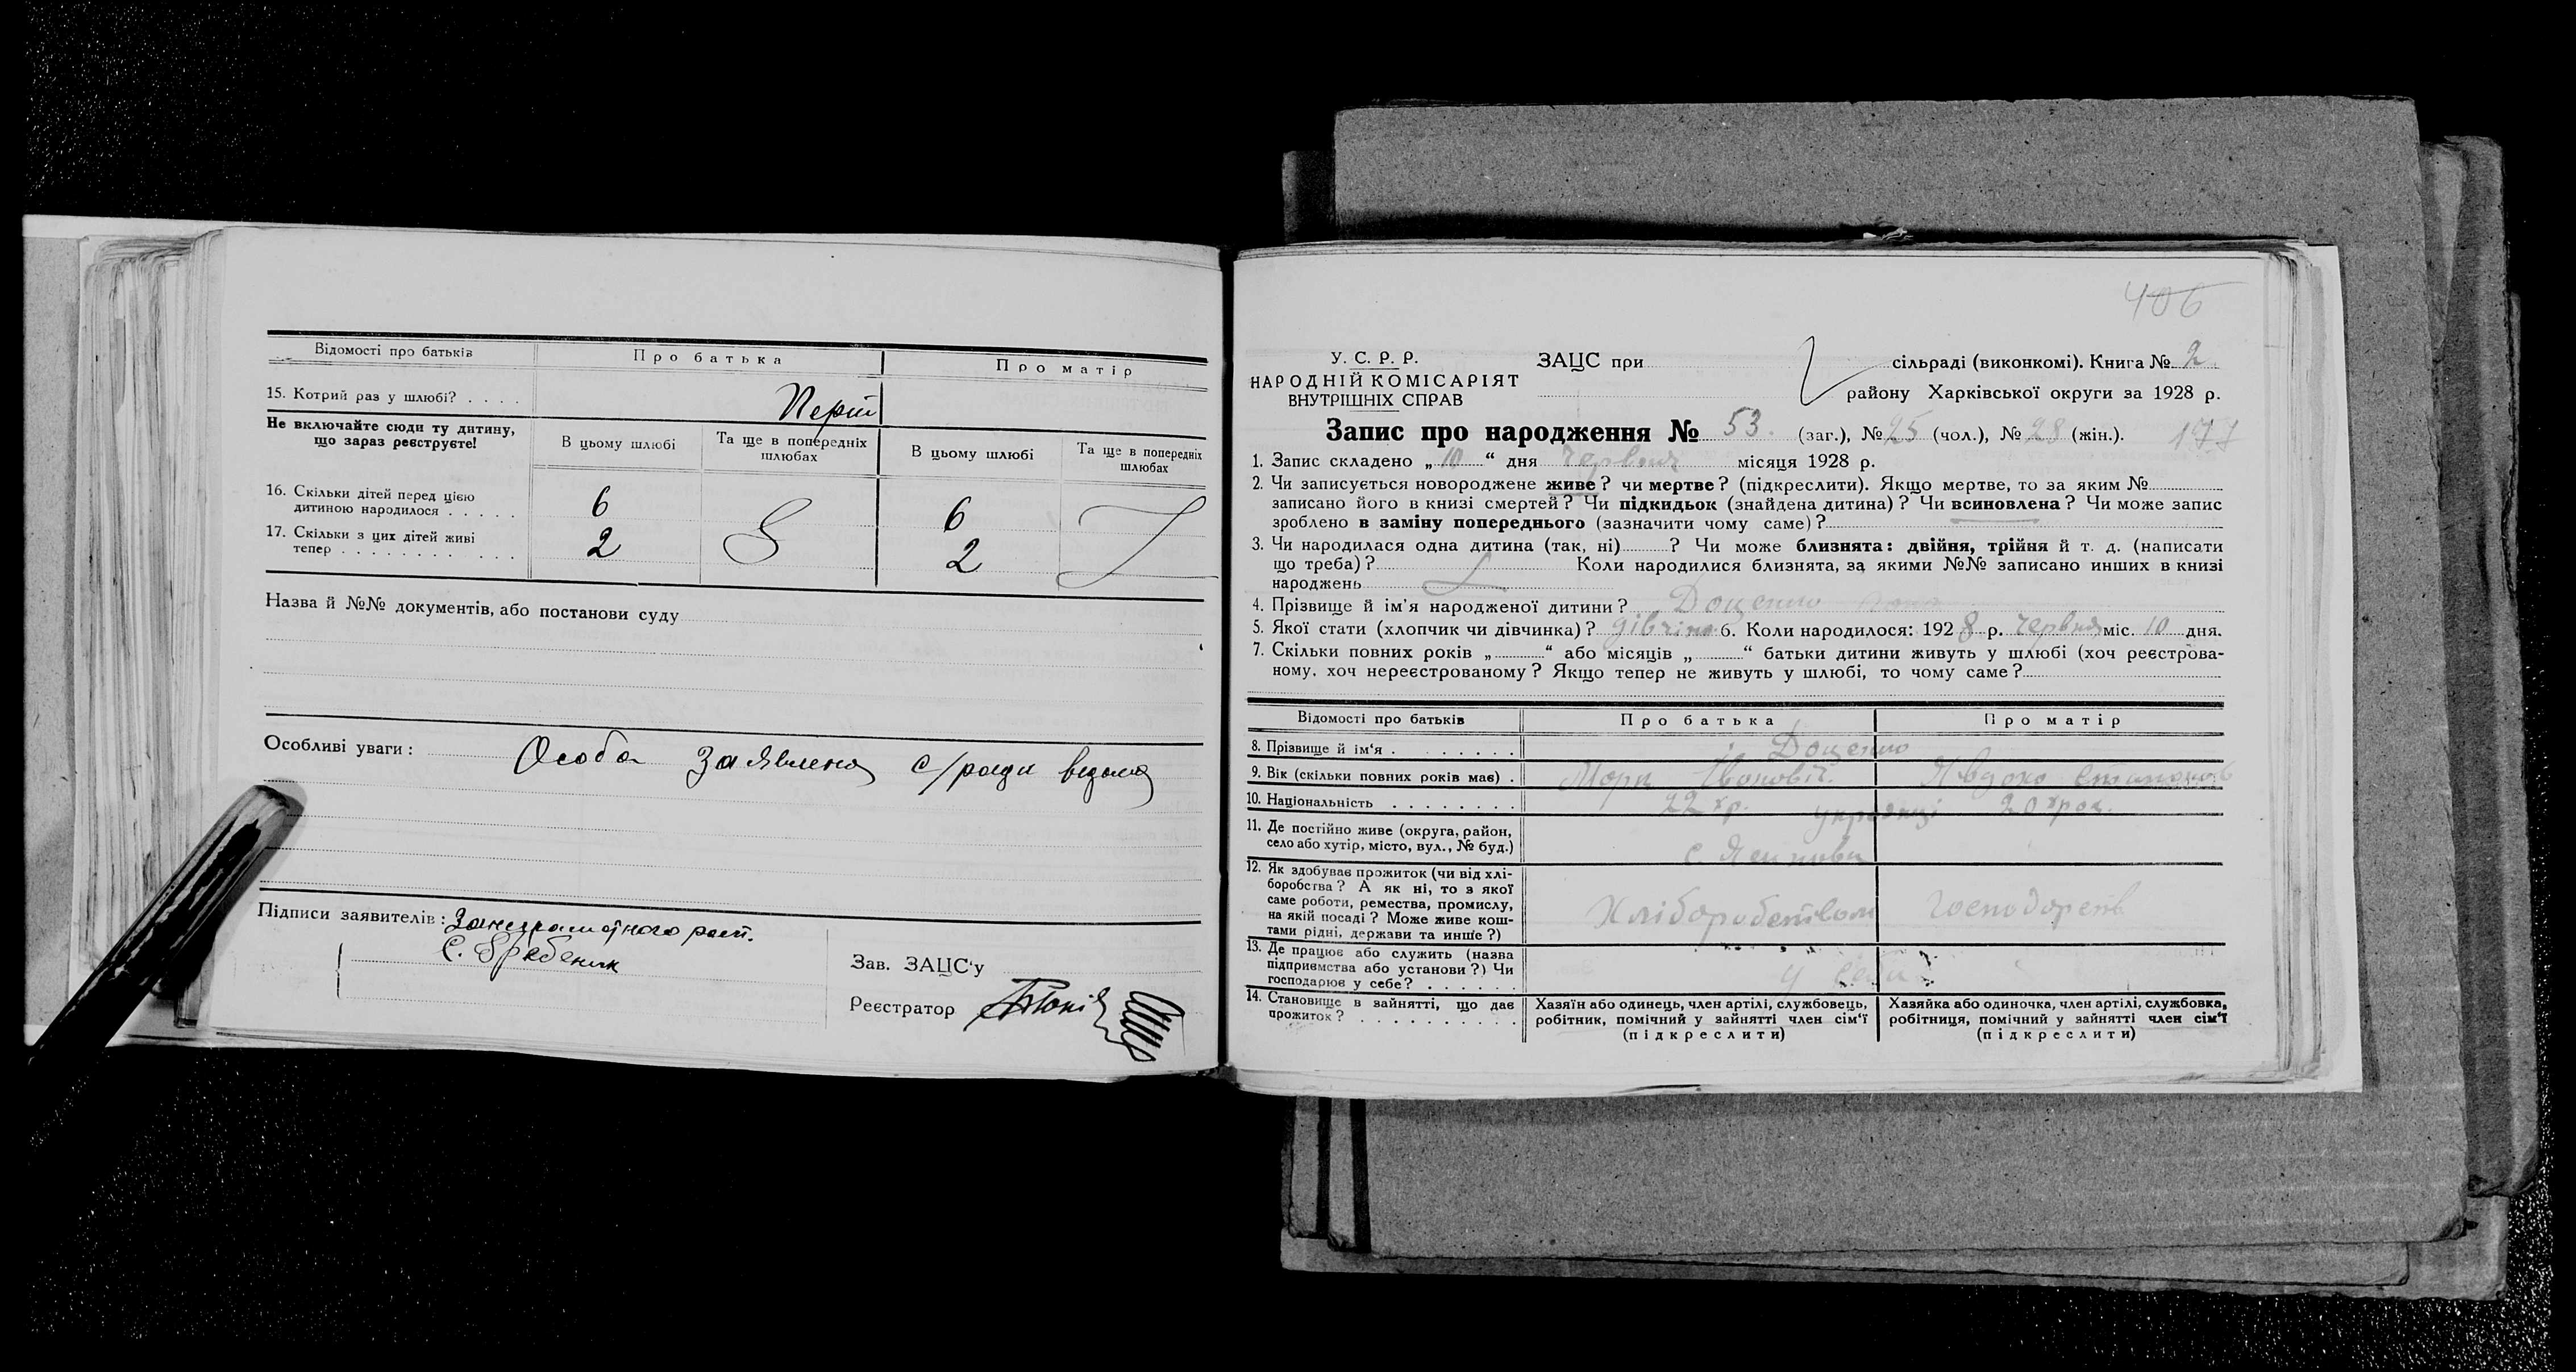 Відомості про батьків
Про батька
Про матір
15. Котрий раз у шлюбі? . . . .
Перш
Не включайте сюди ту дитину, що зараз реєструєте!
В цьому шлюбі
Та ще в попередніх шлюбах
В цьому шлюбі
Та ще в попередніх шлюбах
16. Скільки дітей перед цією дитиною народилося . . . . .
6
6
17. Скільки з цих дітей живі тепер . . . . . . . . . . .
2
2
Назва й №№ документів, або постанови суду
Особливі уваги: Особа заявлена с/ради відома
Підписи заявителів:
С. Гребеник
Зав. ЗАЦС'у
Реєстратор
406
У. С. Р. Р.
НАРОДНІЙ КОМІСАРІЯТ
ВНУТРІШНІХ СПРАВ
ЗАЦС при
сільраді (виконкомі). Книга № 2
району Харківської округи за 1928 р.
Запис про народження № 53 (заг.), № 25 (чол.), № 28 (жін.).
177
1. Запис складено „10“ дня червня місяця 1928 р.
2. Чи записується новороджене живе? чи мертве? (підкреслити). Якщо мертве, то за яким №
записано його в книзі смертей? Чи підкидьок (знайдена дитина)? Чи всиновлена? Чи може запис
зроблено в заміну попереднього (зазначити чому саме)?
3. Чи народилася одна дитина (так, ні)? Чи може близнята: двійня, трійня й т. д. (написати
що треба)? Коли народилися близнята, за якими №№ записано инших в книзі
народжень
4. Прізвище й ім'я народженої дитини? Доценко
5. Якої стати (хлопчик чи дівчинка)? дівчина 6. Коли народилося: 1928 р. червня міс. 10 дня.
7. Скільки повних років „ “ або місяців „ “ батьки дитини живуть у шлюбі (хоч реєстрова-
ному, хоч нереєстрованому? Якщо тепер не живуть у шлюбі, то чому саме?
Відомості про батьків
Про батька
Про матір
8. Прізвище й ім'я . . . . . . . .
Доценко
9. Вік (скільки повних років має) .
Іванович
10. Національність . . . . . . . .
22
українці
20
11. Де постійно живе (округа, район,
село або хутір, місто, вул., № буд.)
с.
12. Як здобуває прожиток (чи від хлі-
боробства? А як ні, то з якої
саме роботи, ремества, промислу,
на якій посаді? Може живе кош-
тами рідні, держави та инше?)
Хліборобством
13. Де працює або служить (назва
підприємства або установи?) Чи
господарює у себе? . . . . . .
у себе
14. Становище в зайнятті, що дає
прожиток? . . . . . . . . . .
Хазяїн або одинець, член артілі, службовець,
робітник, помічний у зайнятті член сім'ї
(підкреслити)
Хазяйка або одиночка, член артілі, службовка,
робітниця, помічний у зайнятті член сім'ї
(підкреслити)